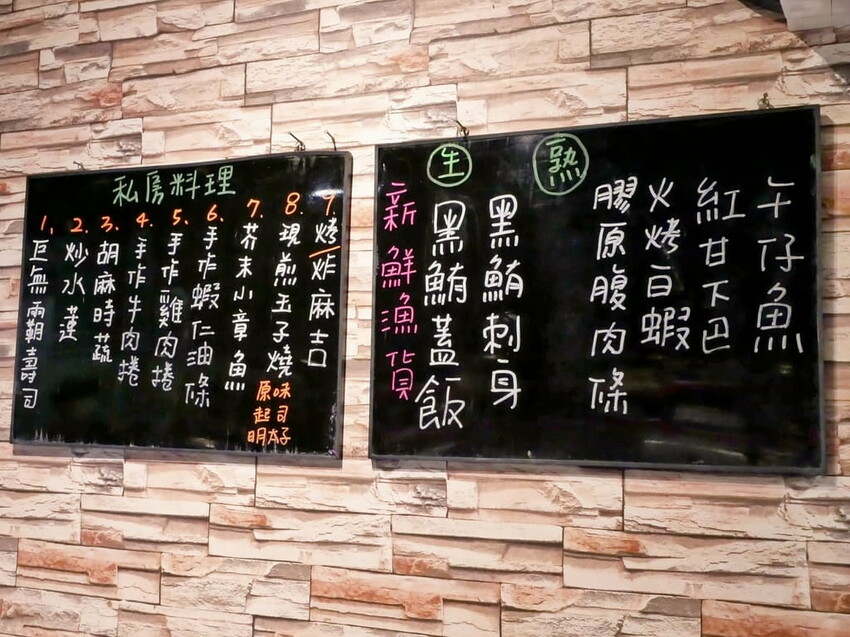 私房料理
1. 巨無霸壽司
2. 炒水蓮
3. 胡麻時蔬
4. 手作牛肉捲
5. 手作雞肉捲
6. 手作蝦仁油條
7. 芥末小章魚
8. 現煎玉子燒
原味
起司
明太子
9 烤炸麻吉
新鮮漁貨
生
黑鮪蓋飯
黑鮪刺身
熟
膠原腹肉條
火烤白蝦
紅甘下巴
午仔魚